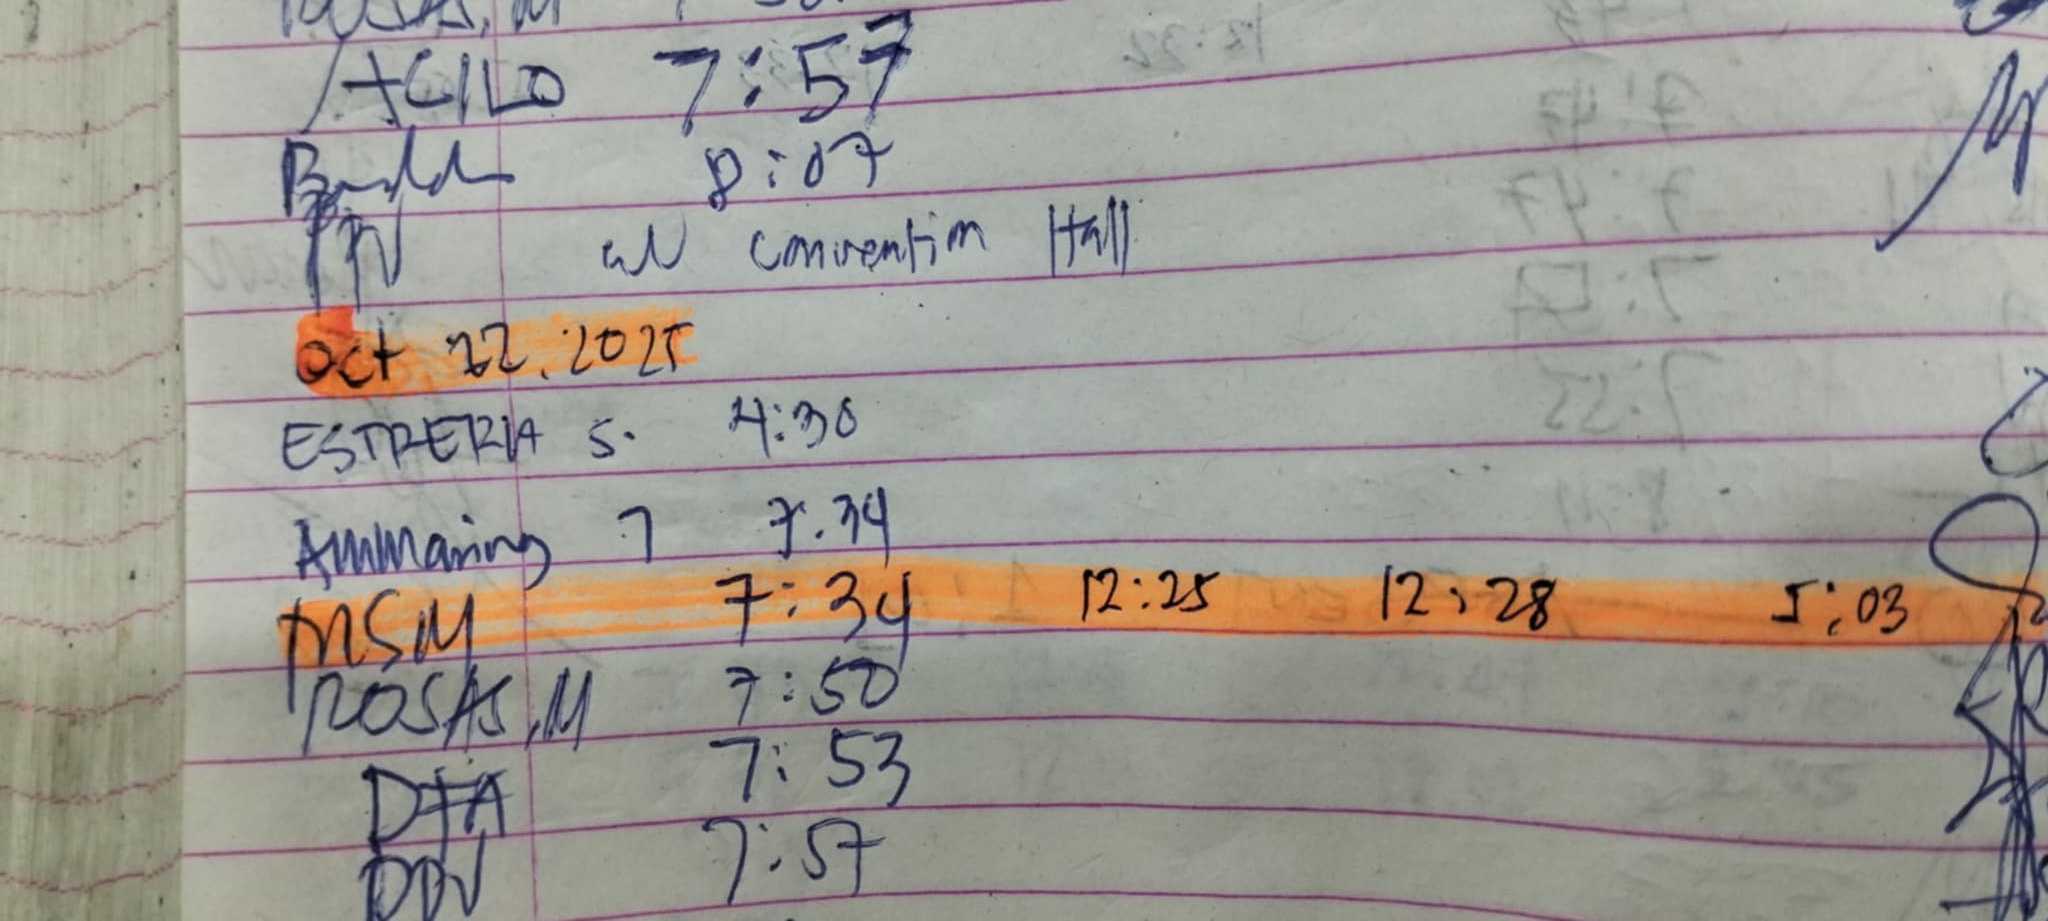 ROSAS, M
ACILO 7:57
8:07
at Convention Hall
Oct 22, 2025
ESTRERIA S. 4:30
Ammaring 7 7.34
MSM 7:34 12:25 12:28 5:03
ROSAS, M 7:50
DTA 7:53
DDV 7:57